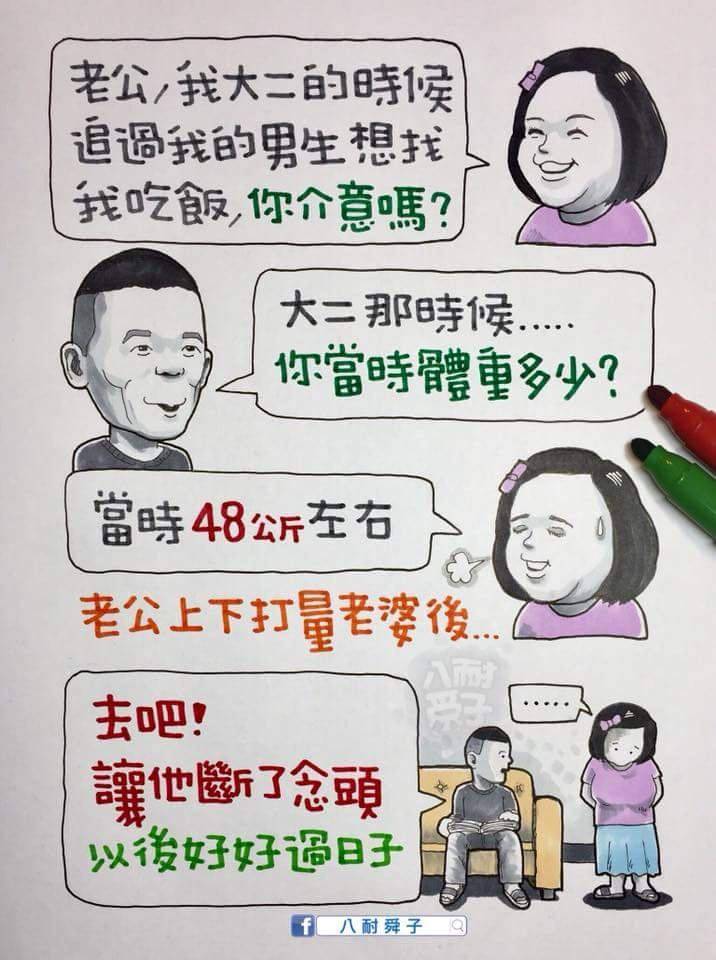 老公,我大二的時候
追過我的男生想找
我吃飯,你介意嗎?
大二那時候.....
你當時體重多少?
當時48公斤左右
老公上下打量老婆後...
八耐
舜子
.....
去吧!
讓他斷了念頭
以後好好過日子
f 八耐舜子